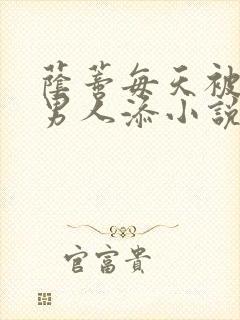 蔭蒂每天被
男人添小說
官富貴